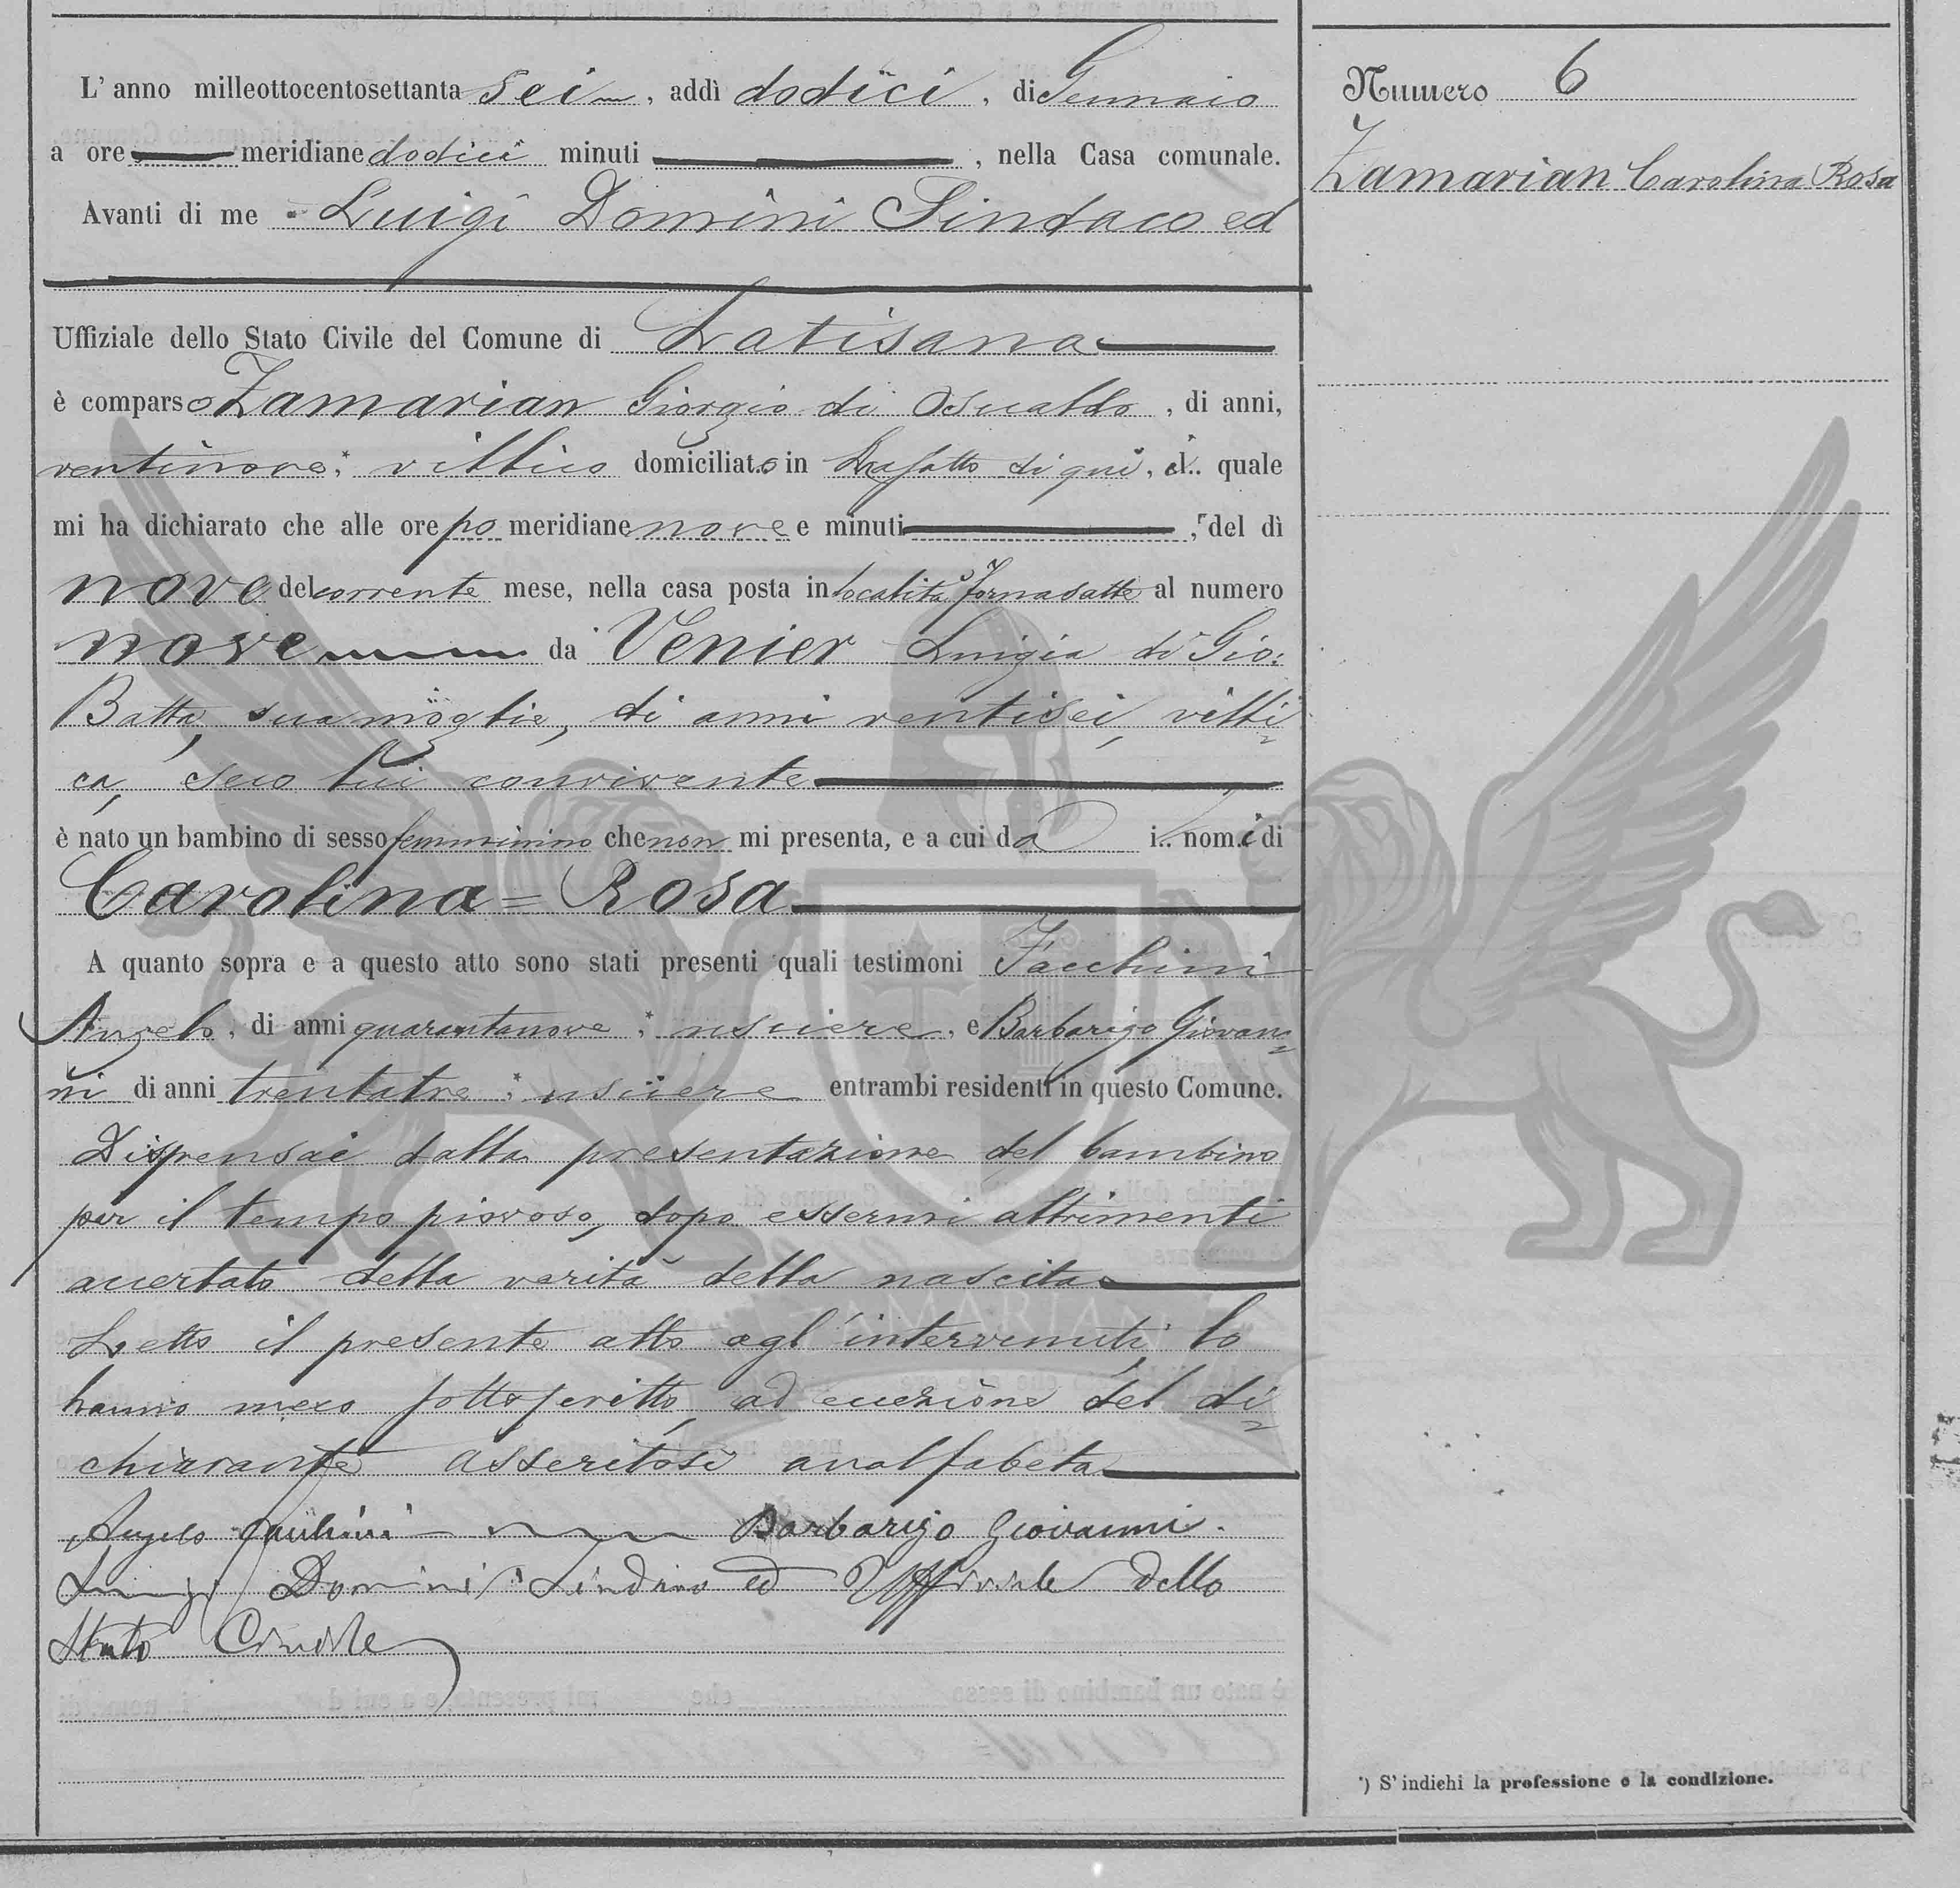 L'anno milleottocentosettanta sei, addì dodici, di Gennaio
a ore meridiane dodici minuti , nella Casa comunale.
Avanti di me Luigi Domini Sindaco ed
Uffiziale dello Stato Civile del Comune di Latisana
è comparso Zamarian Giorgio di Osualdo, di anni,
ventinove; * villico domiciliato in di qui, il quale
mi ha dichiarato che alle ore po meridiane nove e minuti , del dì
nove del corrente mese, nella casa posta in località al numero
nove da Venier Luigia di Gio:
Batta, sua moglie, di anni ventisei, villi=
ca, seco lui convivente
è nato un bambino di sesso femminino che non mi presenta, e a cui da i.. nomi di
Carolina = Rosa
A quanto sopra e a questo atto sono stati presenti quali testimoni Facchini
Angelo, di anni quarantanove; * usciere, e Barbarigo Giovan=
ni di anni trentatre; * usciere entrambi residenti in questo Comune.
Dispensai dalla presentazione del bambino
per il tempo piovoso, dopo essermi altrimenti
accertato della verità della nascita
Letto il presente atto agl'intervenuti, lo
hanno meco sottoscritto, ad eccezione del di=
chiarante asseritosi analfabeta
Angelo Facchini Barbarigo Giovanni.
Luigi Domini Sindaco ed Uffiziale dello
Stato Civile
Numero 6
Zamarian Carolina Rosa
*) S'indichi la professione o la condizione.